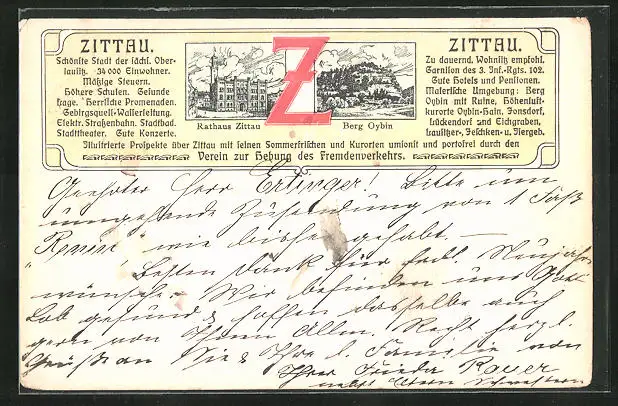 ZITTAU.
Schönste Stadt der sächs. Ober-
lausitz. 34 000 Einwohner.
Mäßige Steuern.
Höhere Schulen. Gesunde
Lage. Herrliche Promenaden.
Gebirgsquell-Wasserleitung.
Elektr. Straßenbahn. Stadtbad.
Stadttheater. Gute Konzerte.
Z
Rathaus Zittau
Berg Oybin
ZITTAU.
Zu dauernd. Wohnsitz empfohl.
Garnison des 3. Inf.-Rgts. 102.
Gute Hotels und Pensionen.
Malerische Umgebung: Berg
Oybin mit Ruine, Höhenluft-
kurorte Oybin-Hain, Jonsdorf,
Lückendorf und Eichgraben,
Lausitzer-, Jeschken- u. Isergeb.
Illustrierte Prospekte über Zittau mit seinen Sommerfrischen und Kurorten umsonst und portofrei durch den
Verein zur Hebung des Fremdenverkehrs.
Geehrter Herr Ertinger! Bitte um
umgehende Zusendung von 1 Faß
wie bisher gehabt. —
Besten Dank für frdl. Neujahrs-
wünsche. Wir befinden uns Gott
Lob gesund & hoffen dasselbe auch
gern von Ihnen Allen. Recht herzl.
Grüße an Sie & Ihre l. Familie von
Ihrer Frieda
nebst Eltern Schwestern